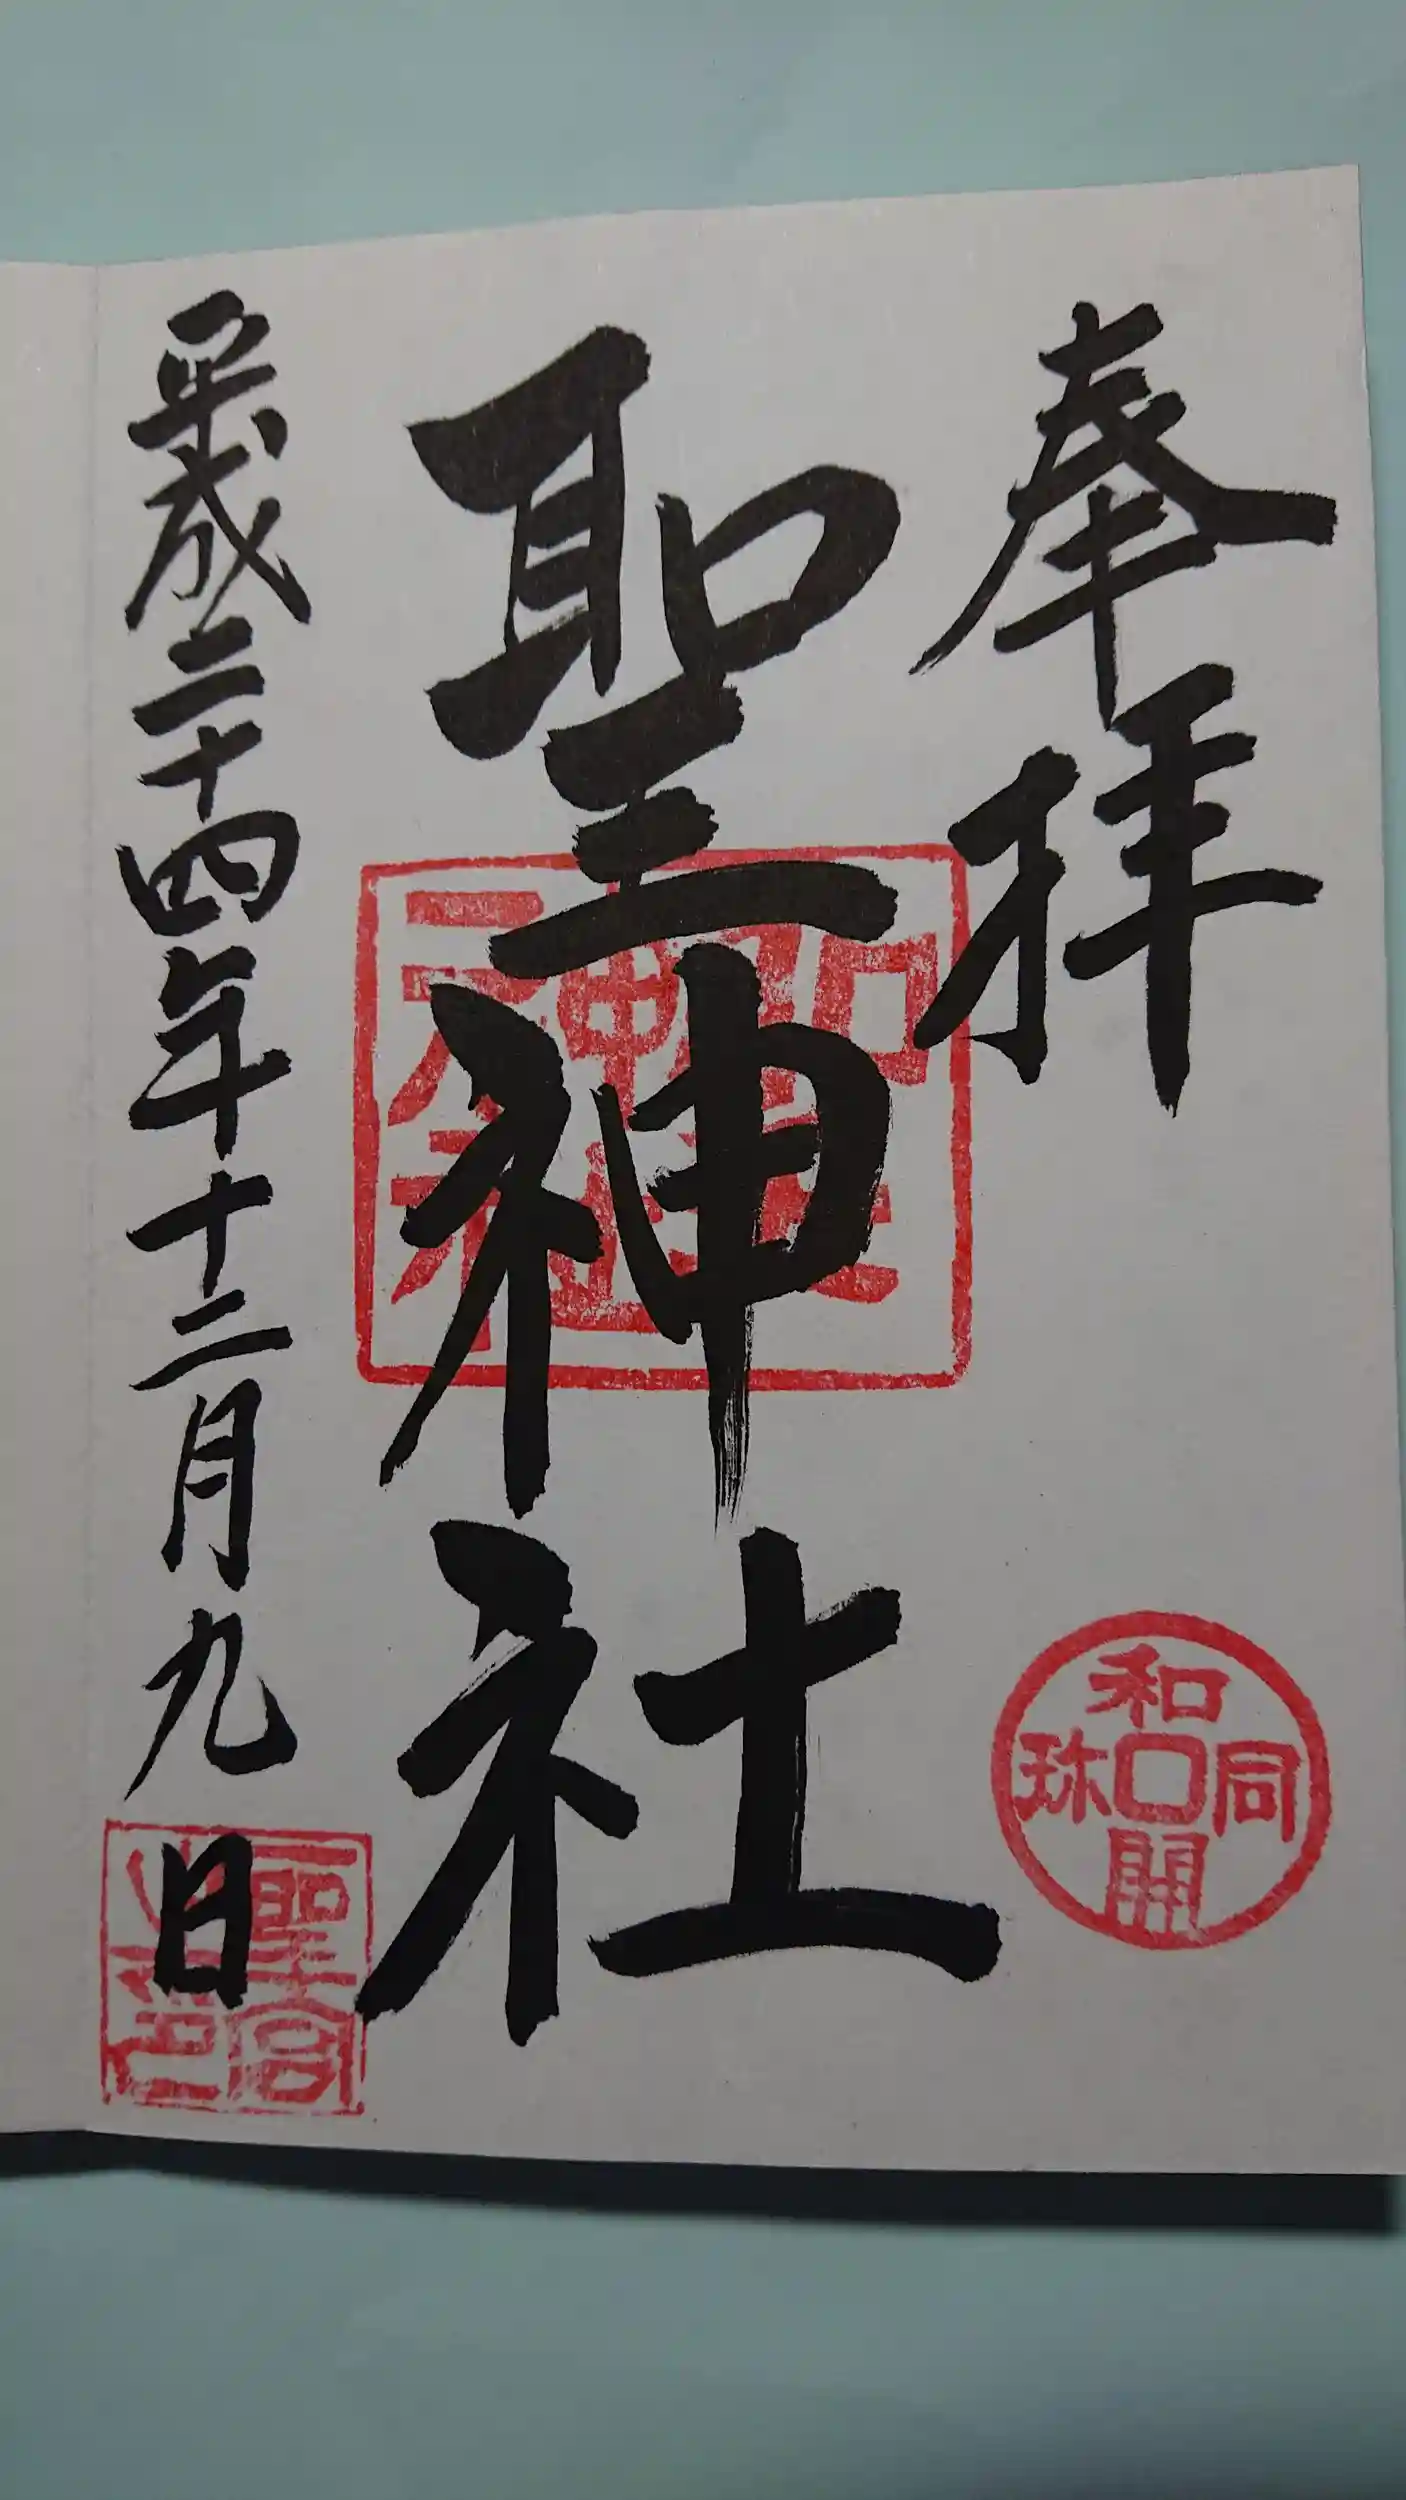 奉拝
和同開珎
聖神社
聖神社
平成二十四年十二月九日